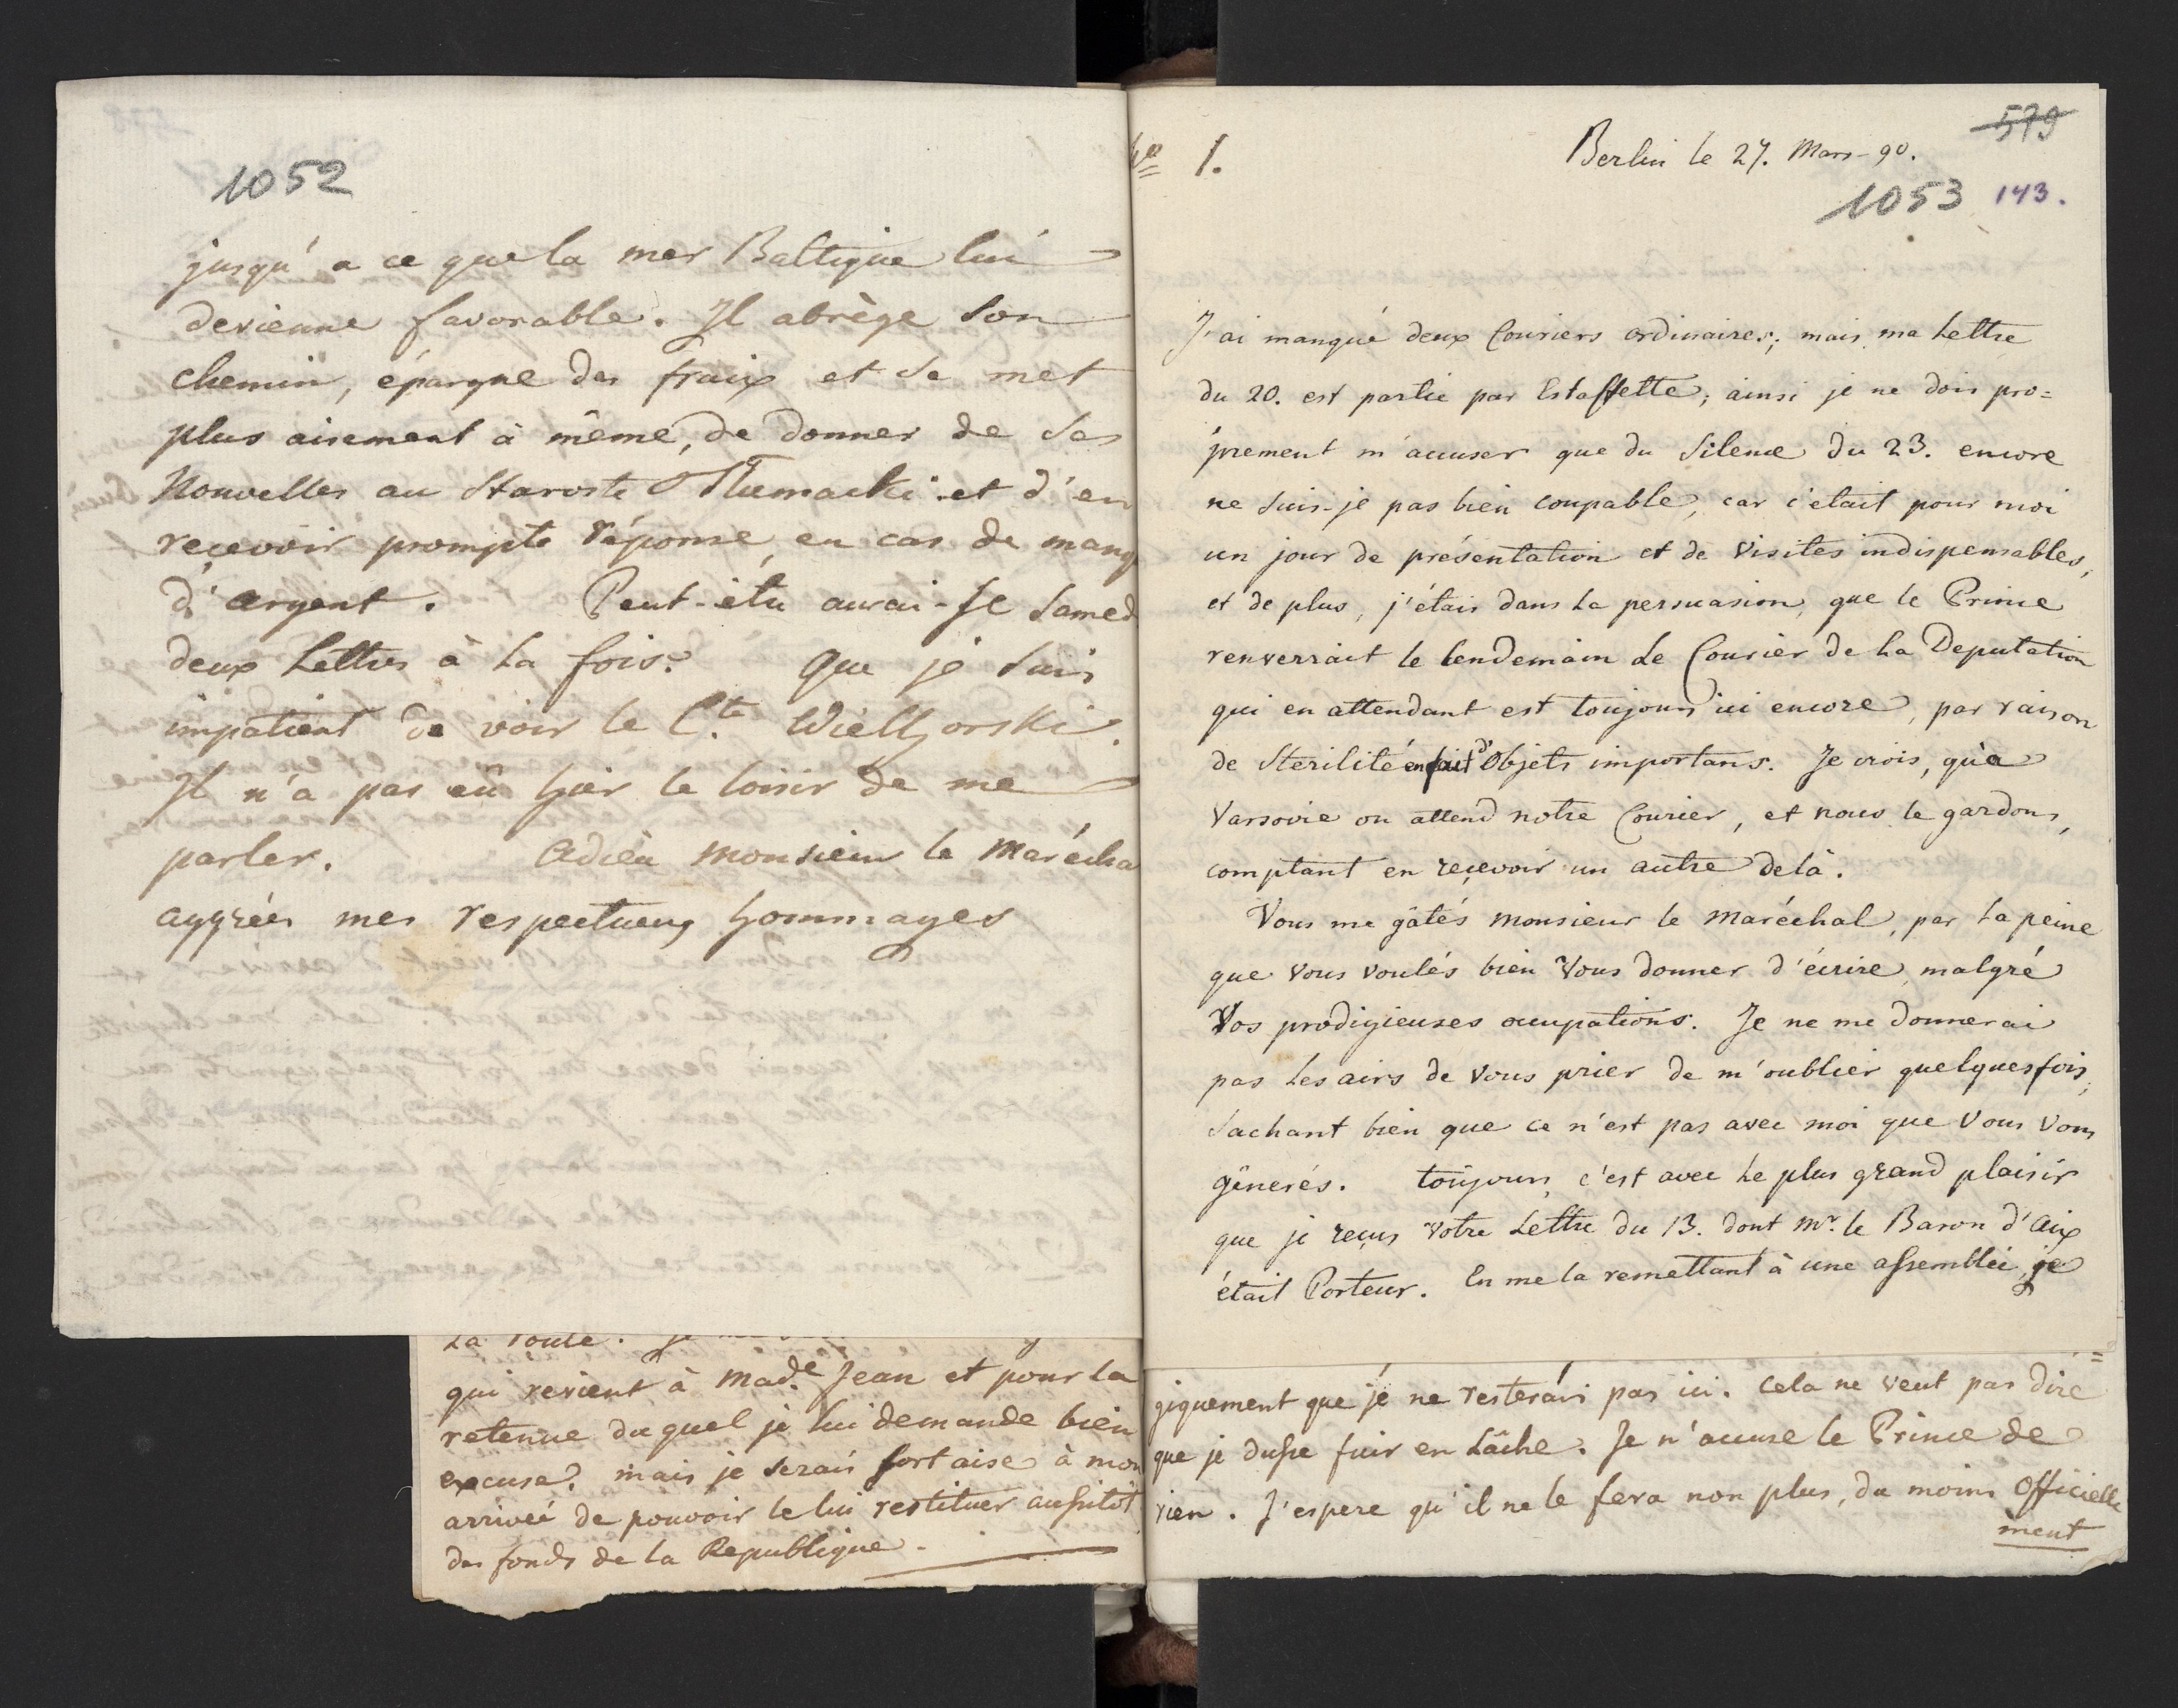 1052
jusqu'a ce que la mer Baltique lui
devienne favorable. Il abrège son
chemin, épargne des fraix et se met
plus aisement à même, de donner de ses
Nouvelles au Staroste et d'en
reçevoir prompte réponse, en cas de manq
d'argent. Peut-être aurai-Je samed
deux Lettres à la fois. Que je suis
impatient de voir le Cte Wielhorski.
Il n'a pas eû hier le loisir de me
parler. Adieu Monsieur le Marécha
aggréés mes respectueux hommages
La route. Je
qui revient à Made Jean et pour la
retenue duquel je lui demande bien
excuse. mais je serais fort aise à mon
arrivée de pouvoir le lui restituer aussitôt
des fonds de la Republique.
No 1. Berlin le 27. Mars - 90.
579
1053 143.
J'ai manqué deux Couriers ordinaires; mais ma Lettre
du 20. est partie par Estaffette; ainsi je ne dois pro=
prement m'accuser que du Silence du 23. encore
ne suis-je pas bien coupable, car c'etait pour moi
un jour de présentation et de visites indispensables,
et de plus, j'étais dans la persuasion, que le Prince
renverrait le lendemain le Courier de la Deputation
qui en attendant est toujours ici encore, par raison
de Sterilité en fait d'Objets importans. Je crois, qu'a
Varsovie on attend notre Courier, et nous le gardons,
comptant en reçevoir un autre delà.
Vous me gâtés Monsieur le Maréchal, par la peine
que Vous voulés bien Vous donner d'écrire, malgré
Vos prodigieuses occupations. Je ne me donnerai
pas les airs de Vous prier de m'oublier quelquesfois,
sachant bien que ce n'est pas avec moi que Vous Vous
gênerés. toujours, c'est avec le plus grand plaisir
que je reçus Votre Lettre du 13. dont Mr. le Baron d'Aix
était Porteur. En me la remettant à une assemblée, je
giquement que je ne resterais pas ici. Cela ne veut pas dire
que je dusse fuir en Lâche. Je n'accuse le Prince de
rien. J'espere qu'il ne le fera non plus, du moins Officielle
ment